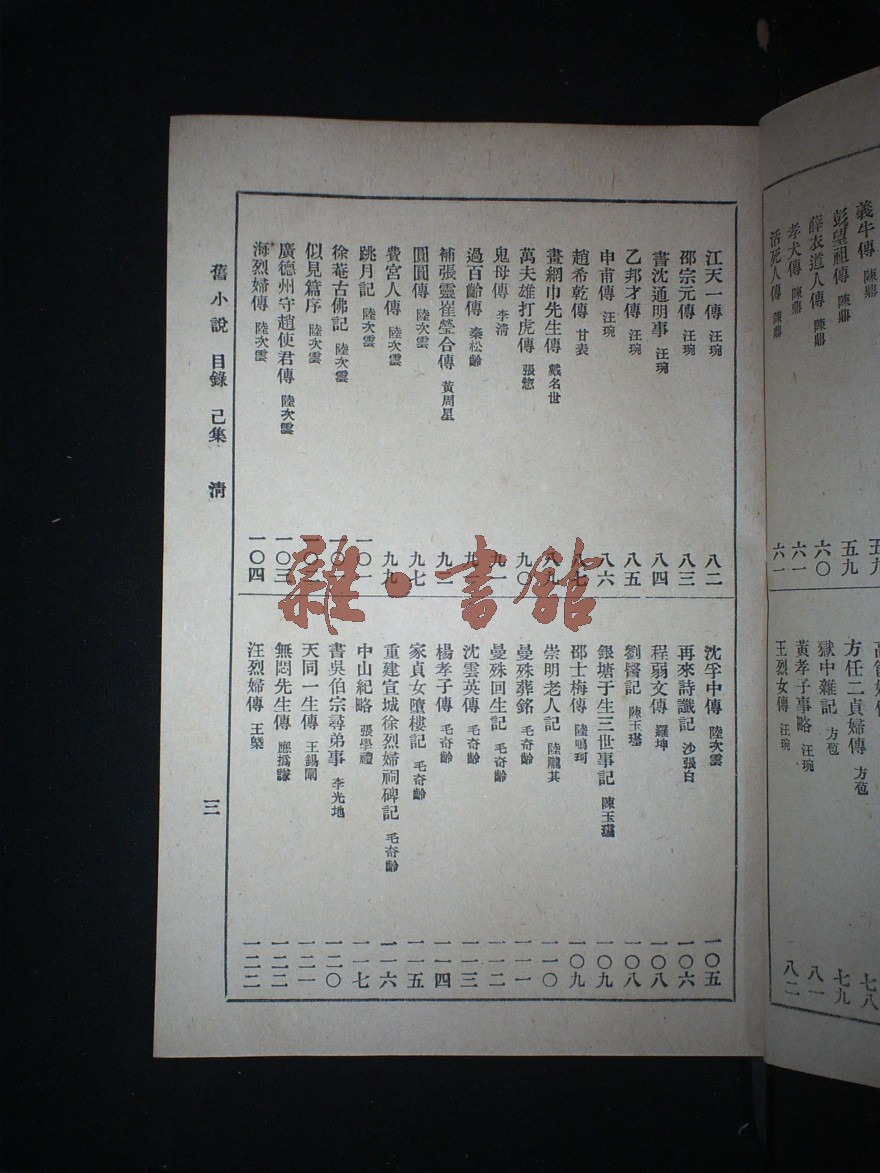 義牛傳 陳鼎 五九
彭望祖傳 陳鼎 五九
薛衣道人傳 陳鼎 六〇
孝犬傳 陳鼎 六一
活死人傳 陳鼎 六一
七八
方任二貞婦傳 方苞
獄中雜記 方苞 七九
黃孝子事略 汪琬 八一
王烈女傳 汪琬 八二
江天一傳 汪琬 八二
邵宗元傳 汪琬 八三
書沈通明事 汪琬 八四
乙邦才傳 汪琬 八五
申甫傳 汪琬 八六
趙希乾傳 甘表 八七
畫網巾先生傳 戴名世 八九
萬夫雄打虎傳 張惣 九〇
鬼母傳 李清 九一
過百齡傳 秦松齡
補張靈崔瑩合傳 黃周星 九二
圓圓傳 陸次雲 九七
費宮人傳 陸次雲 九九
跳月記 陸次雲 一〇一
徐菴古佛記 陸次雲
似見篇序 陸次雲
廣德州守趙使君傳 陸次雲 一〇三
海烈婦傳 陸次雲 一〇四
沈孚中傳 陸次雲 一〇五
再來詩讖記 沙張白 一〇六
程弱文傳 羅坤 一〇八
劉醫記 陳玉璂 一〇八
銀塘于生三世事記 陳玉璂 一〇九
邵士梅傳 陸鳴珂 一〇九
崇明老人記 陸隴其 一一〇
曼殊葬銘 毛奇齡 一一一
曼殊回生記 毛奇齡 一一二
沈雲英傳 毛奇齡 一一三
楊孝子傳 毛奇齡 一一四
家貞女墮樓記 毛奇齡 一一五
重建宣城徐烈婦祠碑記 毛奇齡 一一六
中山紀略 張學禮 一一七
書吳伯宗尋弟事 李光地 一二〇
天同一生傳 王錫闡 一二一
無悶先生傳 應撝謙 一二二
汪烈婦傳 王㷆 一二二
舊小說 目錄 己集 清 三
雜·書館